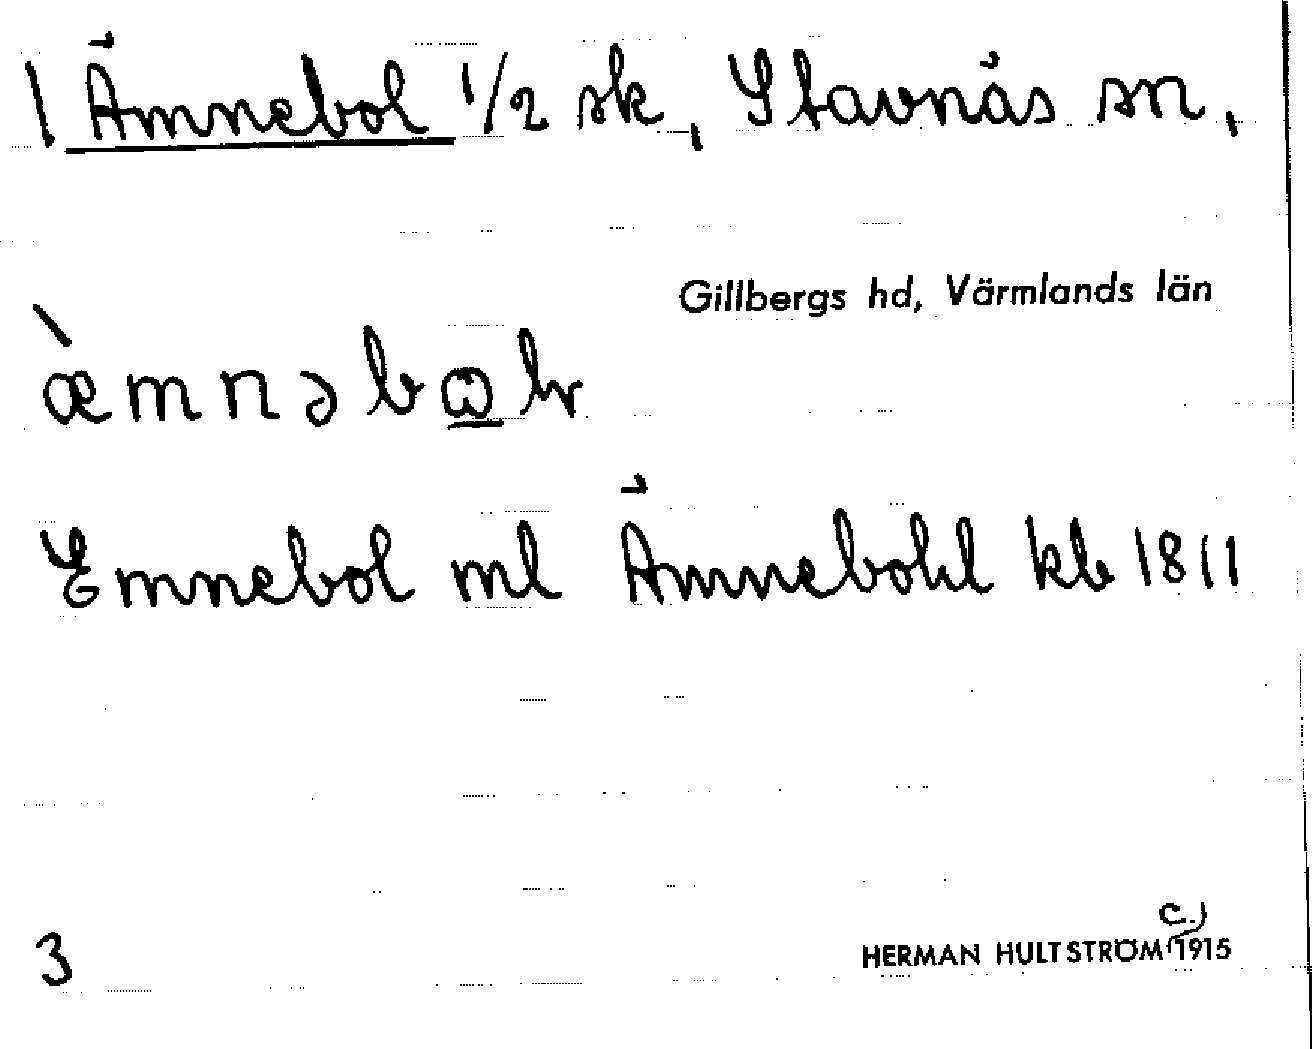 1 Ämnebol 1/2 sk, Stavnäs sn,
Gillbergs hd, Värmlands län
æ̀mnəbω̲lr
Emnebol ml Ämnebohl kb 1811
3 HERMAN HULTSTRÖM (c.) 1915